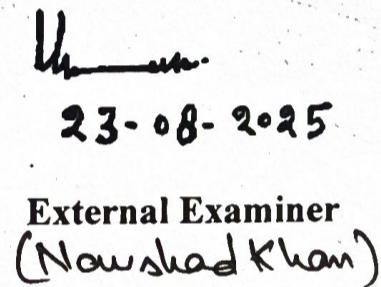 23-08-2025
External Examiner
(Nowshad Khan)